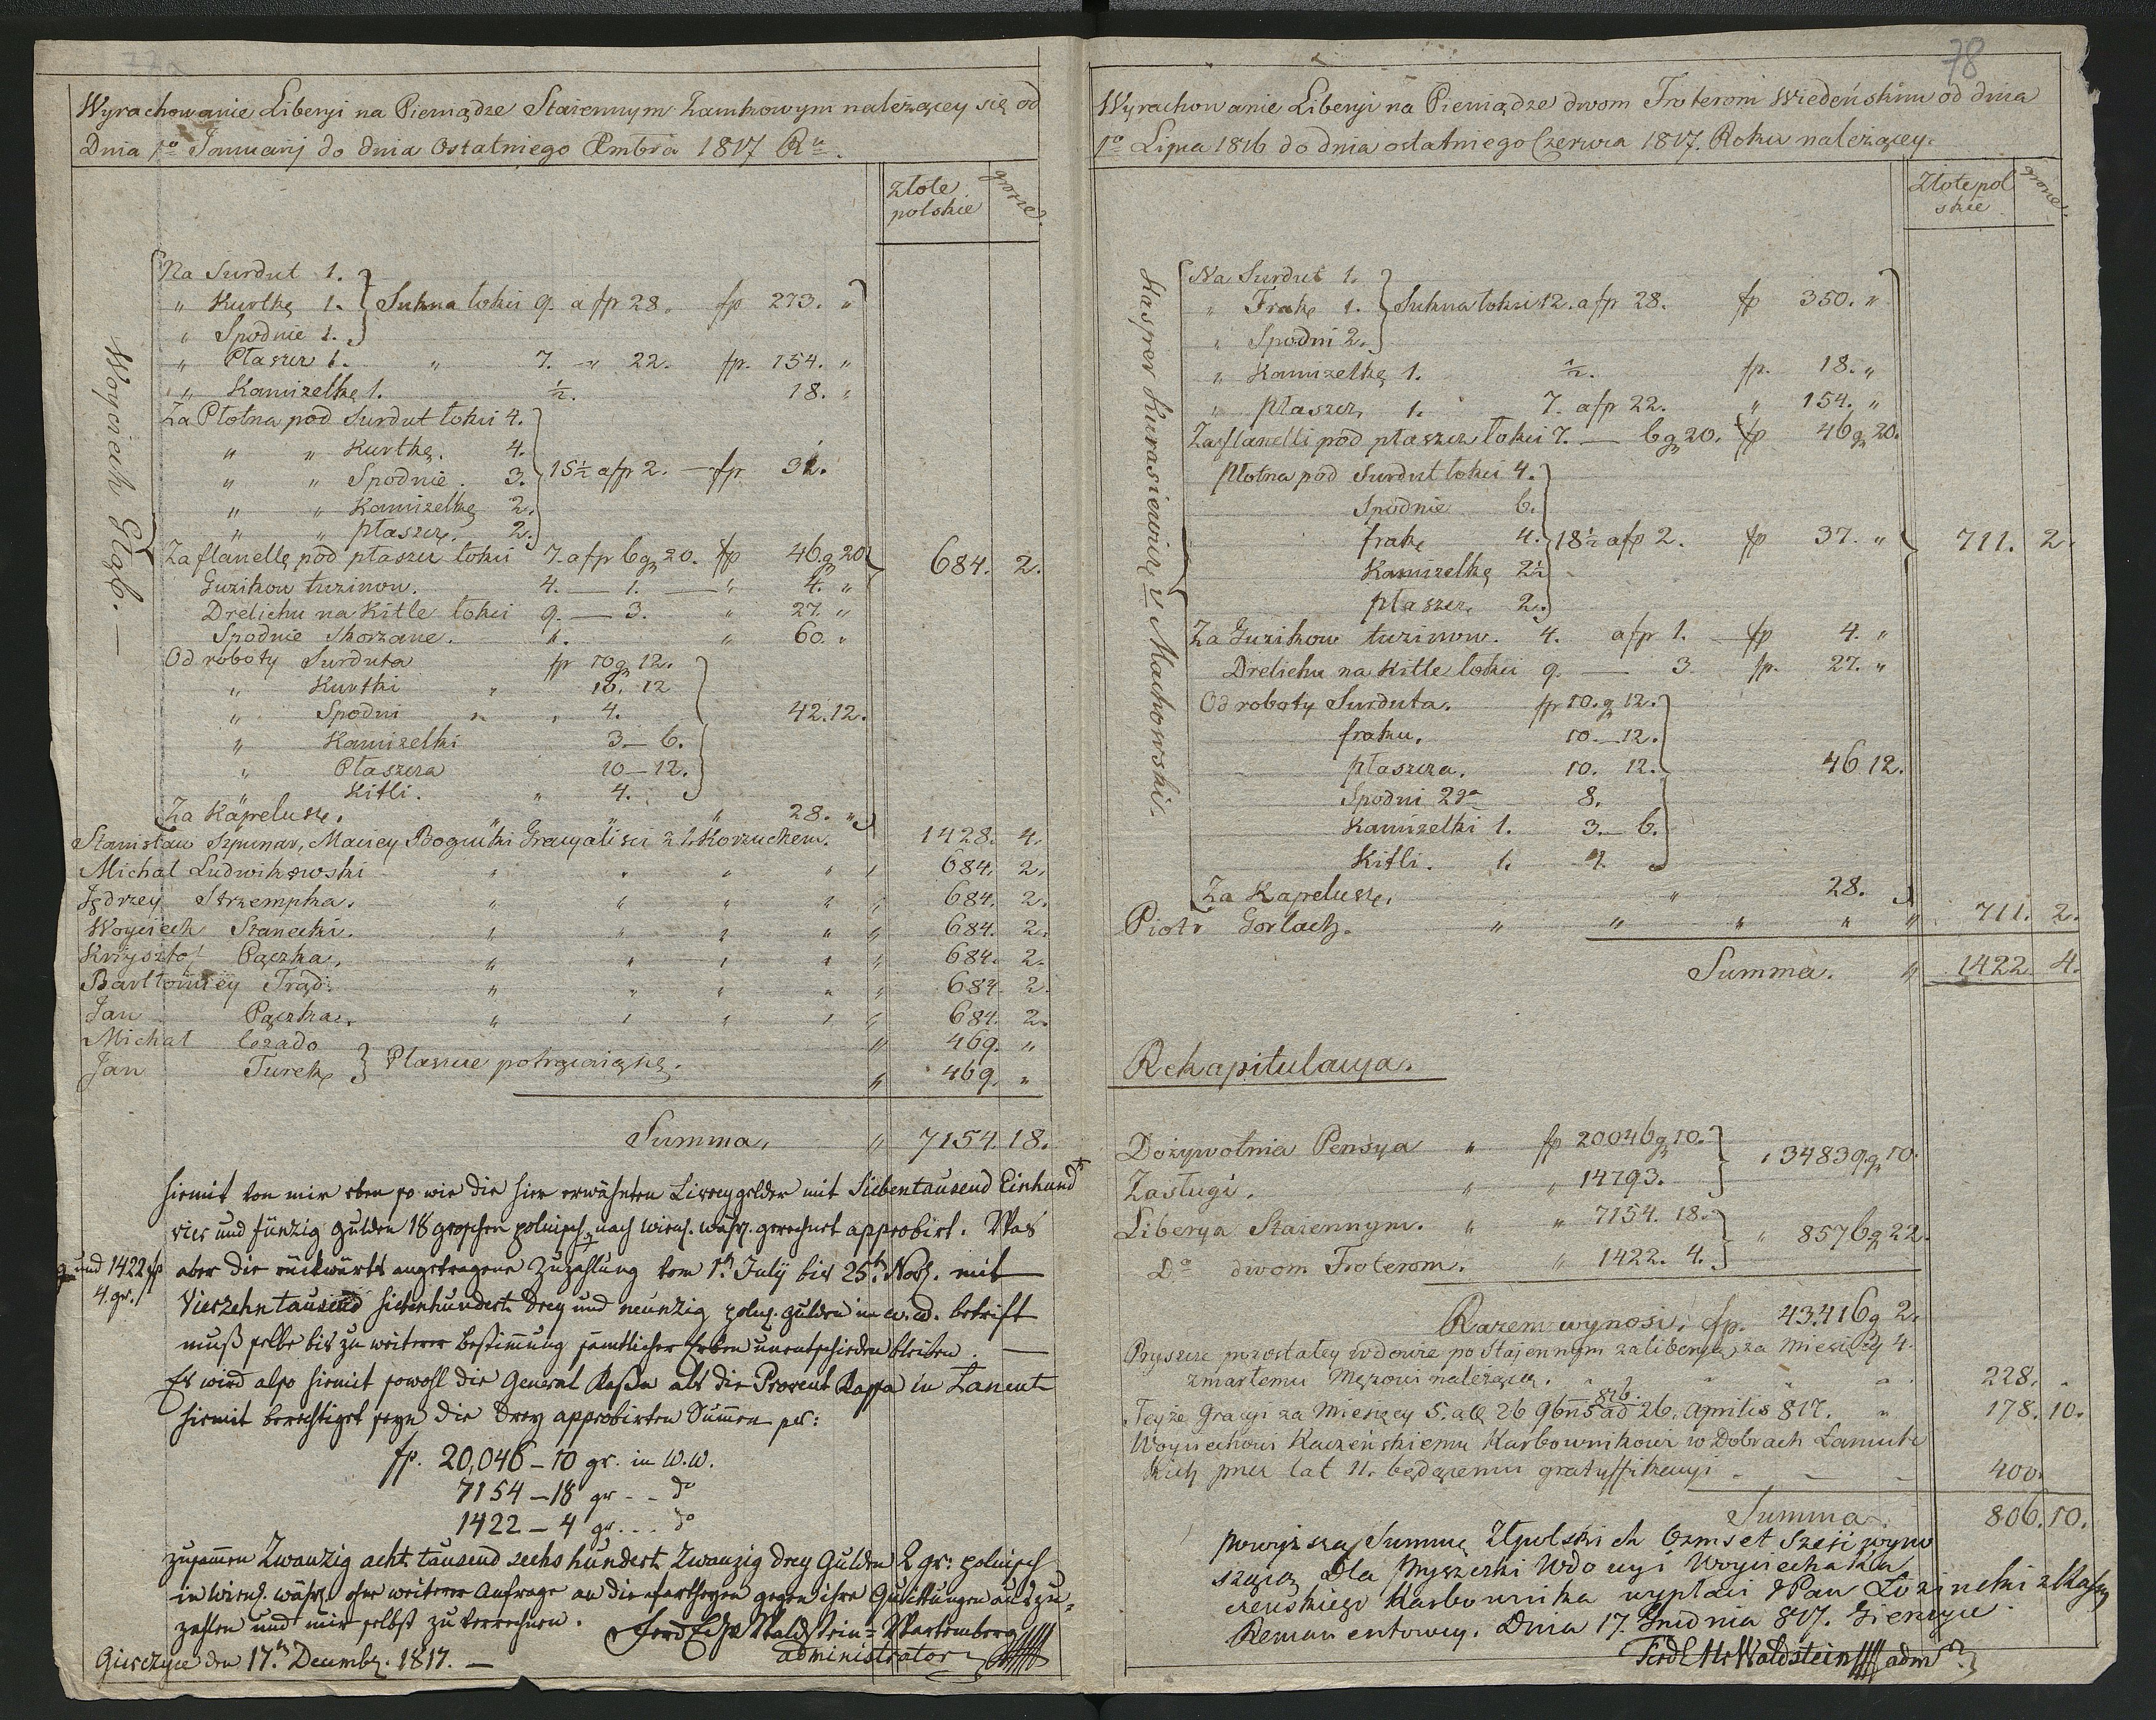 Wyrachowanie Liberyi na Pieniądze Staiennym Zamkowym należącey się od
Dnia 1o Januarij do dnia Ostatniego Xmbra 1817 Ru.
złote polskie grosze.
Woyciech Głąb. —
Na Surdut 1.
" Kurtkę 1. Sukna łokci 9. a fp 28. fp 273. "
" Spodnie 1.
" Płaszcz 1. " 7. " 22. fp. 154. "
" Kamizelkę 1. ½. 18. "
Za Płotna pod Surdut łokci 4.
" " Kurtkę. 4.
" " Spodnie. 3. 15½ afp 2. — fp 31.
" " Kamizelkę 2.
" " płaszcz. 2.
Za flanellę pod płaszcz łokci 7. afp 6 g 20. fp 46 g 20 684. 2.
Guzikow tuzinow. 4. — 1. — " 4. "
Drelichu na Kitle łokci 9. — 3. " 27. "
Spodnie skorzane. " 60. "
Od roboty Surduta fp 10 g 12.
" Kurtki " 10. 12
" Spodni " " 4. 42.12.
" Kamizelki 3 — 6.
" Płaszcza 10 — 12.
" Kitli. " 4.
Za Kapelusz. " " 28. "
Stanisław Szpunar, Maciey Bogucki z Korzuchem. 1428. 4.
Michał Ludwikowski " " " " " 684. 2.
Jędrzey Strzempka. " " " " " 684. 2.
Woyciech Szanecki. " " " " " 684. 2.
Krzysztof Pączka. " " " " " 684. 2.
Bartłomiey Trąd. " " " " " 684. 2.
Jan Pączka. " " " " " 684. 2.
Michał " 469. "
Jan Turek Płaszcze potrącaiąc. " 469. "
Summa. " 7154. 18.
Hiemit von mir eben so wie die hier erwähnten Livreygelder mit Siebentausend Einhund
vier und fünzig Gulden 18 groschen polnisch nach Wien. Währ. gerechnet approbirt. Was
und 1422 fp 4. gr.
aber die rückwärts angetragene Zuzahlung vom 1n July bis 25t Nov. mit
Vierzehn tausend siebenhundert Drey und neunzig poln. Gulden in w.w. betrift
muß selbe bis zu weiterer Bestimmung sämtlicher Erben unentschieden bleiben. —
Es wird also hiemit sowohl die General Kaßa als die Provent Kassa in Lancut
hiemit berechtiget seyn die Drey approbirten Summen per:
fp. 20,046 — 10 gr. in W.W.
7154 — 18 gr - - do
1422 — 4 gr. - - do
zusammen Zwanzig acht tausend sechs hundert Zwanzig drey Gulden 2 gr: polnisch
in Wien. Währ. ohne weiterer Anfrage an die gegen ihre Quittungen auszu-
zahlen und mir selbst zu verrechnen. Ferd Waldstein-Wartemberg
Gierczyce den 17t Decembr. 1817. — administrator
78
Wyrachowanie Liberyi na Pieniądze dwom Froterom Wiedeńskim od dnia
1o Lipca 1816 do dnia ostatniego Czerwca 1817. Roku należącey.
Złote pol skie grosze.
Kasper Kurasiewicz v Machowski.
Na Surdut 1.
" Frak 1. Sukna łokci 12. a fp 28. fp 350. "
" Spodni 2.
" Kamizelkę 1. ½. fp. 18. "
" płaszcz, 1. 7. a fp 22. " 154. "
Za flanelli pod płaszcz łokci 7. — 6 g 20. fp 46 g 20.
Płotna pod Surdut łokci 4.
Spodnie 6.
frak 4. 18½ afp 2. fp 37. " 711. 2.
Kamizelkę 2½
płaszcz. 2.
Za Guzikow tuzinow. 4. afp 1. — fp 4. "
Drelichu na Kitle łokci 9. — 3. fp. 27. "
Od roboty Surduta. fp 10. g 12.
fraku. 10. — 12.
płaszcza. 10. 12. 46 12.
Spodni 2ga 8.
Kamizelki 1. 3. — 6.
Kitli. 1. 4.
Za Kapelusz. " 28.
Piotr Gorlach. " " " " " 711. 2.
Summa. " 1422 4.
Rekapitulacya.
Dożywotnia Pensya " fp 20046 g 10. " 34839 g 10.
Zasługi. " " 14793.
Liberya Staiennym. " " 7154. 18. " 8576 g 22.
Do dwom Froterom. " 1422. 4.
Razem wynosi. fp. 43,416 g 2.
pozostałey wdowie po Stajennym za liberyą, za miesięcy 4.
zmarłemu Mężowi należącą. " " " 228. "
Teyże Gracyi za Miesięcy 5. a 26 9bris 816 ad 26. Aprilis 817. " 178. 10.
Woyciechowi Kaczeńskiemu Karbownikowi w Dobrach Łancutc
kich przez lat 11. będącemu gratyffikacyi - - - 400.
Summa 806. 10.
Powyższą Summę Złpolskich Ozmset Sześć wyno
szącą dla Wdowy i Woyciecha Ka
czenskiego Karbownika wypłaci JPan z Kassy
Remanentowey. Dnia 17. Grudnia 817. Gierczyce.
Ferd Waldstein adm